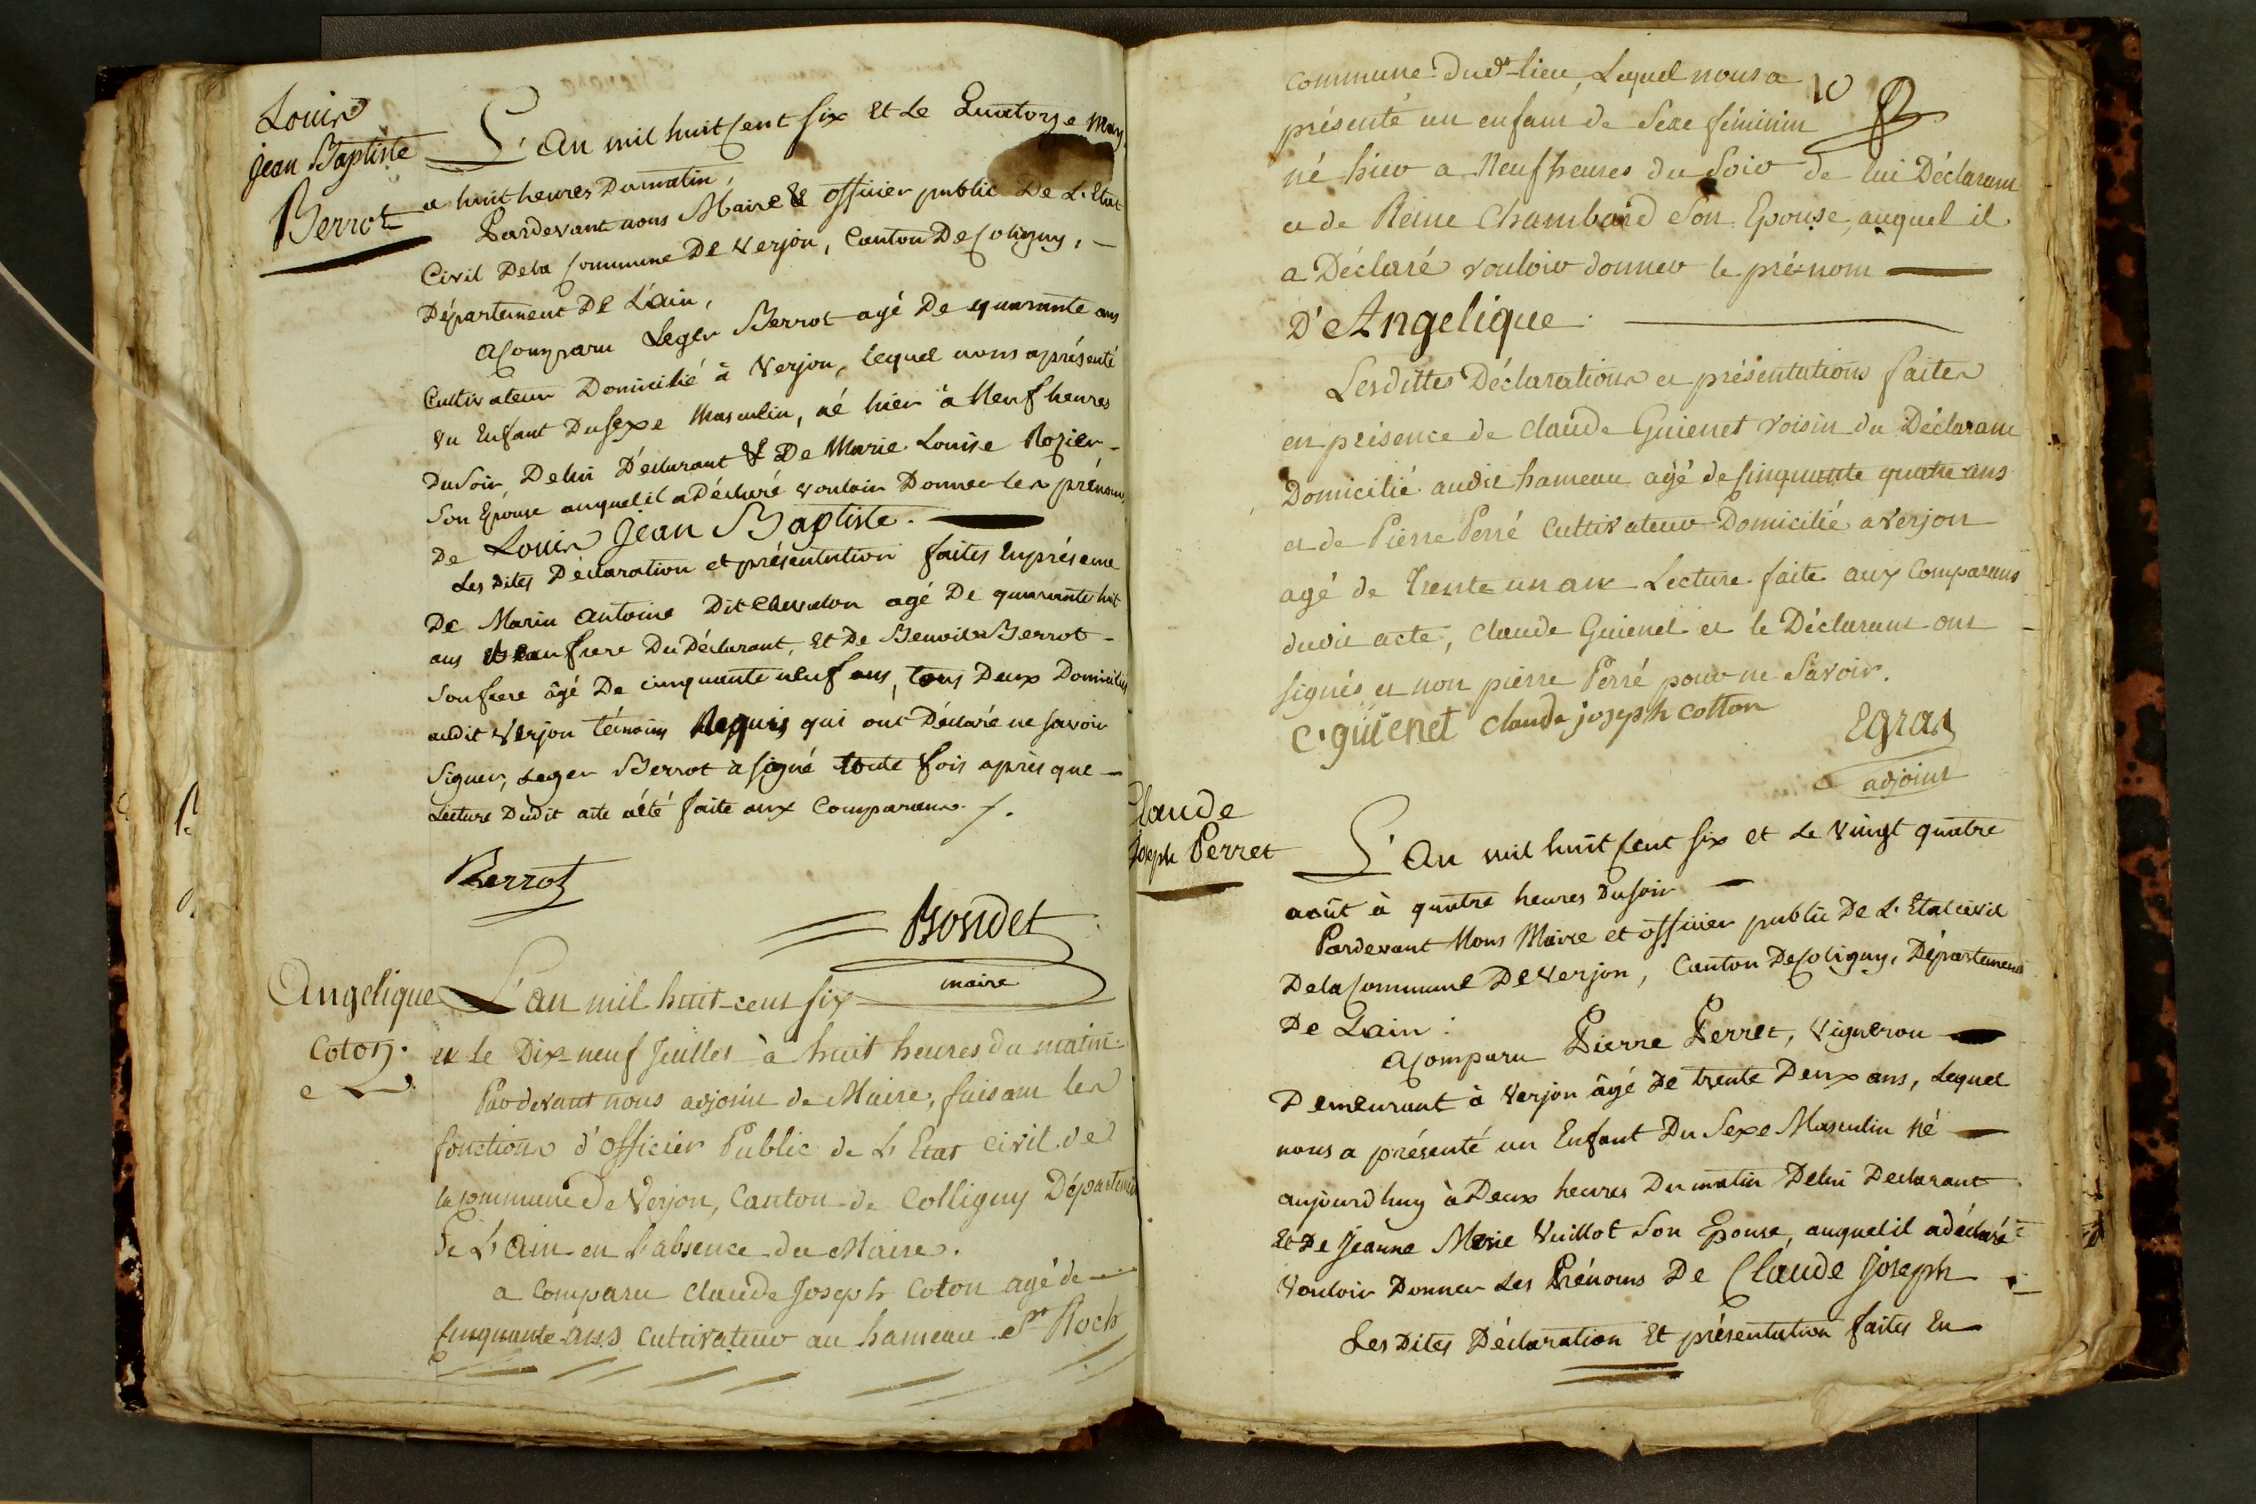 Louis
Jean Baptiste
Berrot
L'An mil huit Cent Six Et Le Quatorze May
a huit heures Du matin,
Pardevant nous Maire & officier public De L'Etat
Civil De la Commune De Verjon, Canton De Coligny,
Département De L'ain,
a Comparu Leger Berrot agé De quarante ans
Cultivateur Domicilié à Verjon, lequel nous a présenté
un Enfant Du Sexe Masculin, né hier à Neuf heures
Du Soir De lui Déclarant & De Marie Louise Rozier
Son Epouse auquel il a Déclaré vouloir Donner les prénoms
De Louis Jean Baptiste.
Les Dites Déclaration et présentation faites En présence
De Marin Antoine Dit Chevalon agé De quarante huit
ans Beaufrere Du Déclarant, Et De Benoit Berrot
Son frere âgé De cinquante neuf ans, tous Deux Domiciliés
audit Verjon témoins Requis qui ont Déclaré ne savoir
Signer, Leger Berrot à signé toute fois après que
Lecture Dudit acte a été faite aux Comparans.
Berrot
Bondet
maire
Angelique
Coton.
L'an mil huit-cent six
et le Dix-neuf Juillet à huit heures du matin.
Par devant nous adjoint de Maire, faisant les
fonctions d'officier Public de L'Etat civil de
la commune de Verjon, Canton de Colligny Département
De L'Ain en L'absence du Maire.
a Comparu Claude Joseph Coton agé de
Cinquante ans Cultivateur au hameau St Roch
10
commune dudt lieu, Lequel nous a
présenté un enfant de Sexe féminin
né hier a Neuf heures du Soir de lui Déclarant
et de Reine Chambard Son Epouse, auquel il
a Déclaré vouloir donner le pré-nom
D'Angelique.
Lesdittes Déclarations et présentations faites
en présence de Claude Guienet voisin du Déclarant
Domicilié audit hameau agé de Cinquante quatre ans
et de Pierre Perré Cultivateur Domicilié a Verjon
agé de Trente un an Lecture faite aux Comparans
dudit acte, Claude Guienet et le Déclarant ont
signés et non pierre Perré pour ne Savoir.
C. guienet Claude joseph Cotton
Egras
adjoint
Claude
Joseph Perret
L'An mil huit Cent Six et Le Vingt quatre
août à quatre heures Du soir
Pardevant Nous Maire et officier public De L'Etat civil
De la Commune De Verjon, Canton De Coligny, Département
De Lain :
a Comparu Pierre Perret, Vigneron
Demeurant à Verjon âgé De trente Deux ans, Lequel
nous a présenté un Enfant Du Sexe Masculin né
aujourdhuy à Deux heures Du matin De lui Declarant
Et De Jeanne Marie Vuillot Son Epouse, auquel il a déclaré
Vouloir Donner Les Prénoms De Claude Joseph
Les Dites Déclaration Et présentation faites En